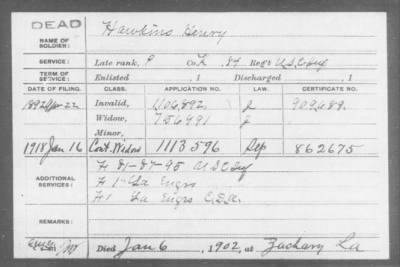 DEAD
NAME OF SOLDIER: Hawkins Henry
SERVICE: Late rank, P Co. K, 84 Reg't U.S.C. Inf
TERM OF SERVICE: Enlisted , 1 Discharged , 1
DATE OF FILING. CLASS. APPLICATION NO. LAW. CERTIFICATE NO.
1892 22 Invalid, 1106,892 J 909,689.
Widow, 756491 J
Minor,
1918 Jan 16 Cont. Widow 1113596 Sep 862675
ADDITIONAL SERVICES: H 81-87-95 U.S.C. Inf
H 1" La Engrs
H 1 La Engrs C.D.A.
REMARKS:
Died Jan 6, 1902, at Zachary La